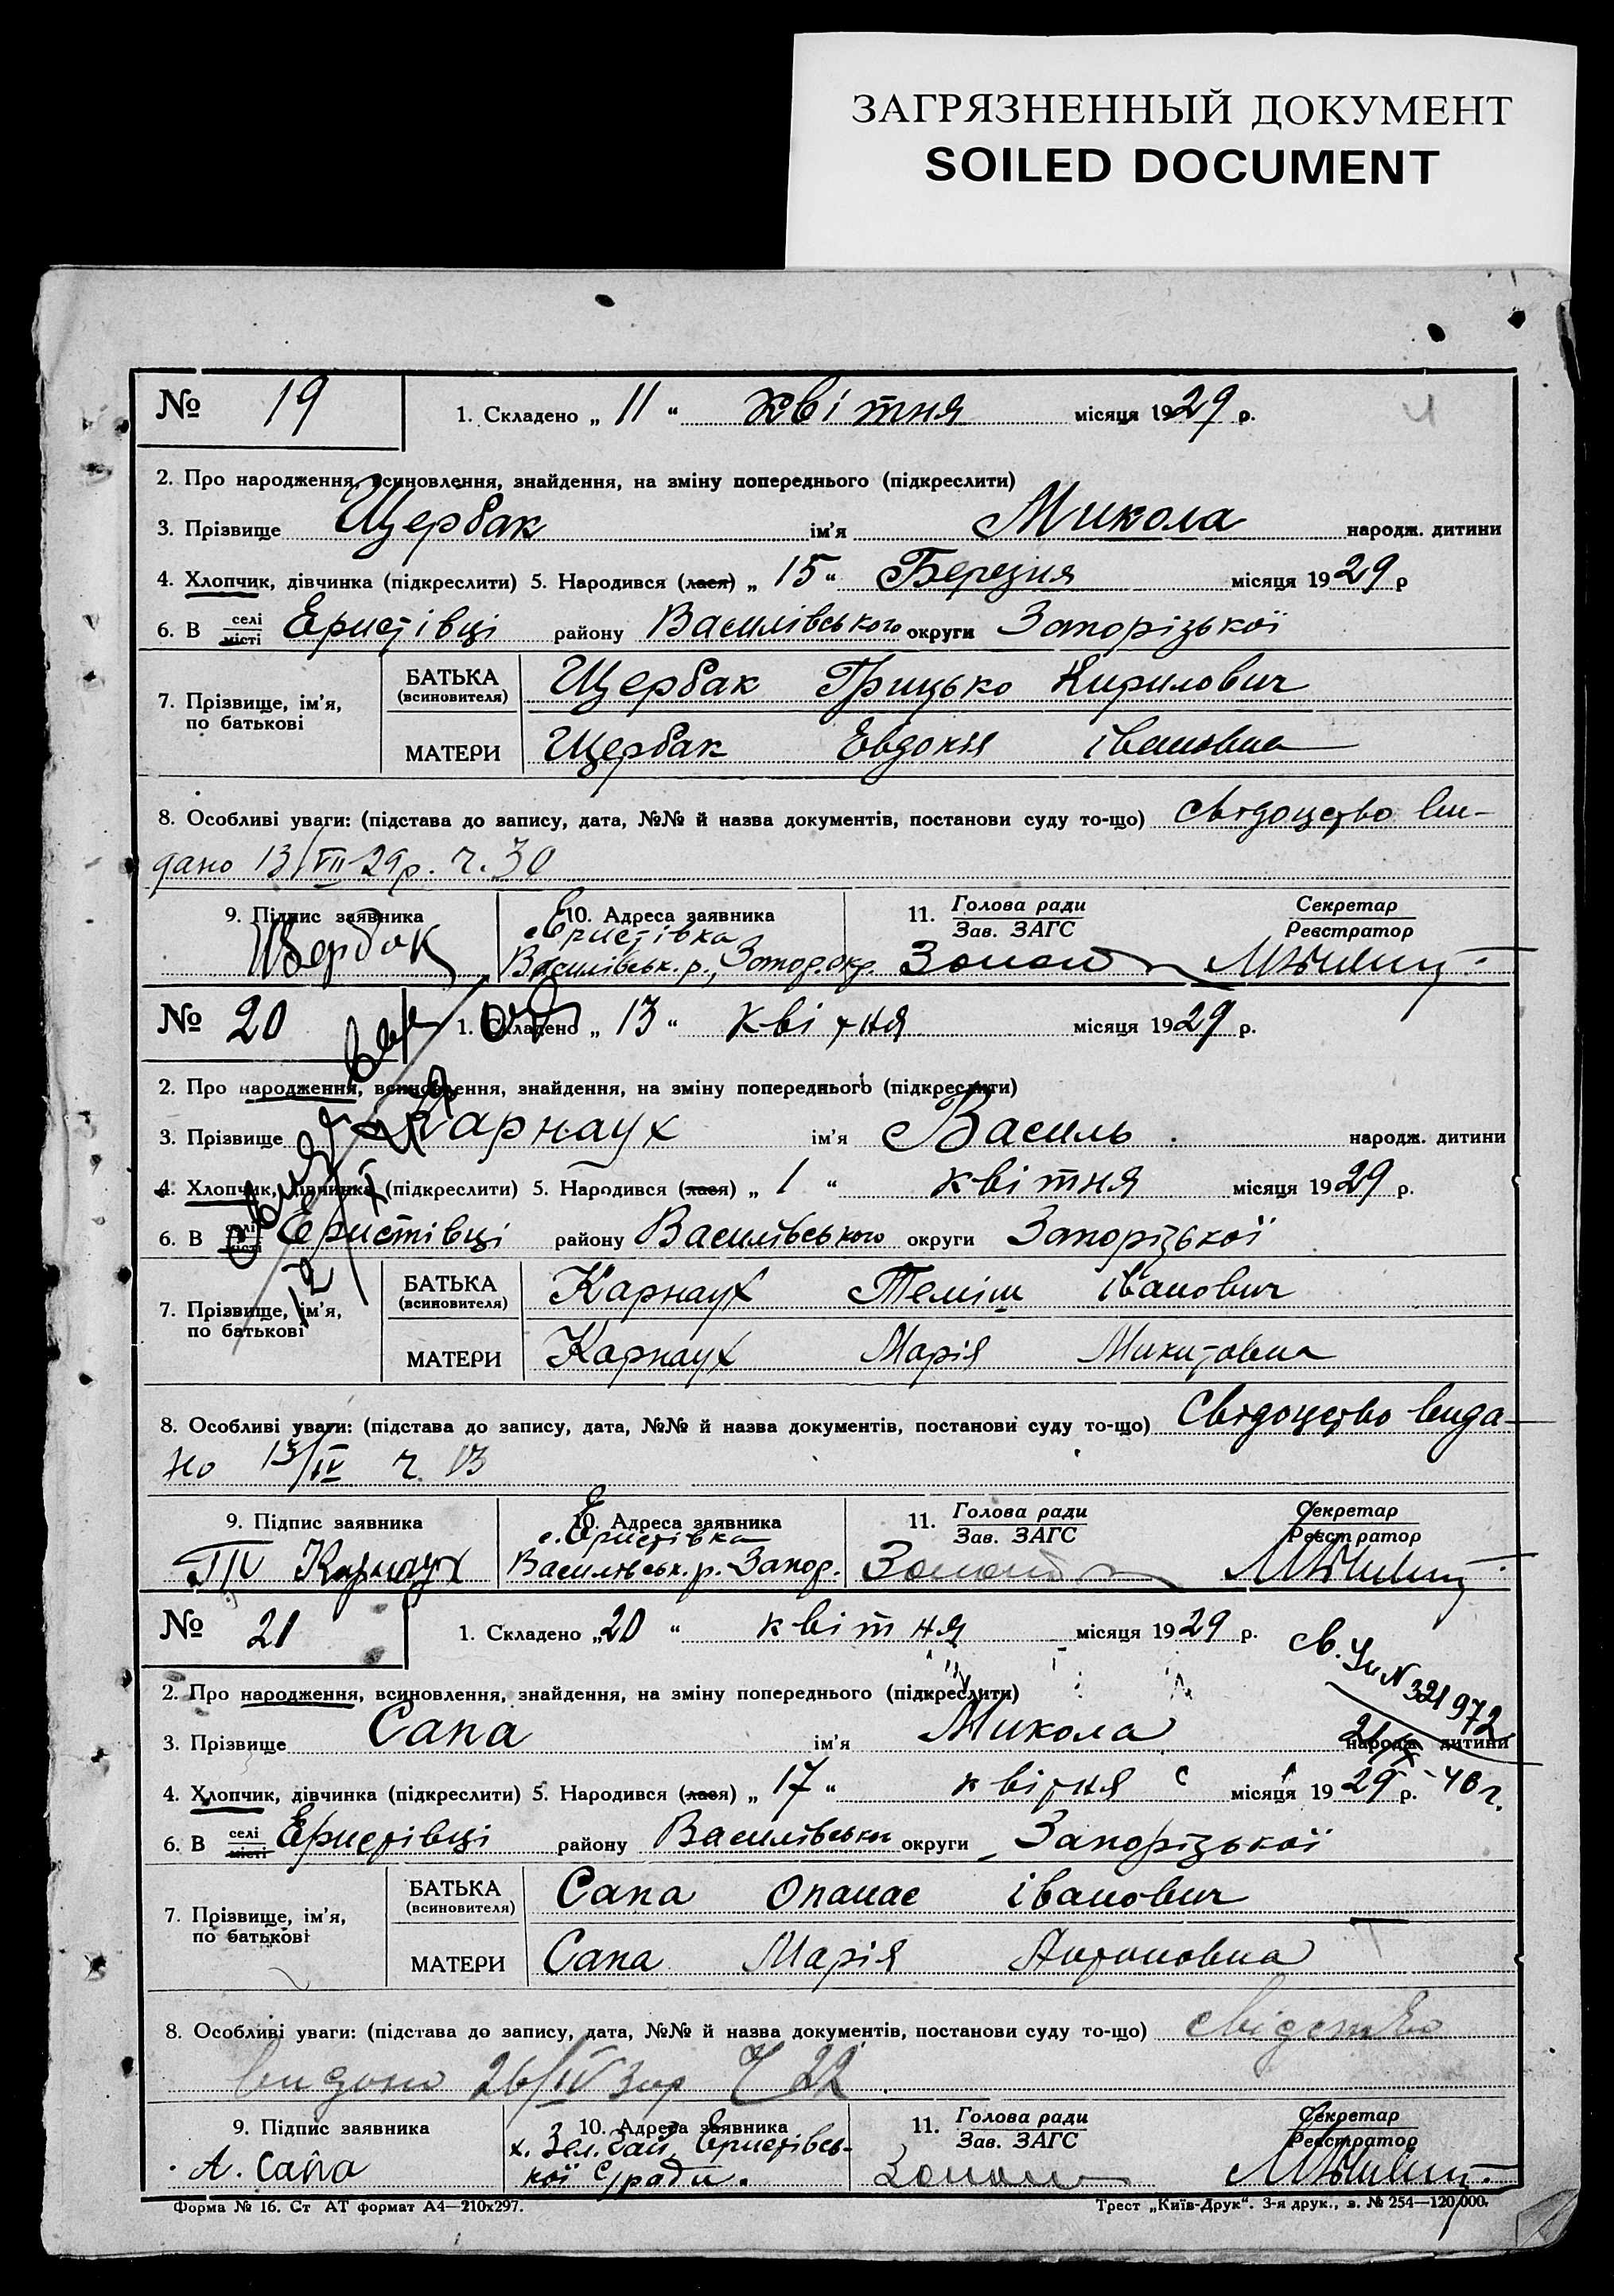 ЗАГРЯЗНЕННЫЙ ДОКУМЕНТ
SOILED DOCUMENT
№ 19 1. Складено „ 11 “ квітня місяця 1929 р.
2. Про народження, всиновлення, знайдення, на зміну попереднього (підкреслити)
3. Прізвище Щербак ім'я Микола народж. дитини
4. Хлопчик, дівчинка (підкреслити) 5. Народився (лася) „ 15 “ Березня місяця 1929 р
6. В селі місті Еристівці району Василівського округи Запорізької
7. Прізвище, ім'я, по батькові
БАТЬКА (всиновителя) Щербак Грицько Кирилович
МАТЕРИ Щербак Евдокія Івановна
8. Особливі уваги: (підстава до запису, дата, №№ й назва документів, постанови суду то-що) Свідоцтво ви-
дано 13/VII-29р. ч. 30
9. Підпис заявника 10. Адреса заявника 11. Голова ради Секретар
Зав. ЗАГС Реєстратор
Щербак
с. Еристівка
Василівськ. р., Запор. окр.
№ 20 1. Складено „ 13 “ квітня місяця 1929 р.
2. Про народження, всиновлення, знайдення, на зміну попереднього (підкреслити)
3. Прізвище Карнаух ім'я Василь народж. дитини
4. Хлопчик, дівчинка (підкреслити) 5. Народився (лася) „ 1 “ квітня місяця 1929 р.
6. В селі місті Еристівці району Василівського округи Запорізької
7. Прізвище, ім'я, по батькові
БАТЬКА (всиновителя) Карнаух Теміш Іванович
МАТЕРИ Карнаух Марія Микитовна
8. Особливі уваги: (підстава до запису, дата, №№ й назва документів, постанови суду то-що) Свідоцтво вида-
но 13/IV ч. 13
9. Підпис заявника 10. Адреса заявника 11. Голова ради Секретар
Зав. ЗАГС Реєстратор
Карнаух
с. Еристівка
Василівськ. р. Запор.
№ 21 1. Складено „ 20 “ квітня місяця 1929 р.
св. № 321972
2. Про народження, всиновлення, знайдення, на зміну попереднього (підкреслити)
3. Прізвище Сапа ім'я Микола народж. дитини
4. Хлопчик, дівчинка (підкреслити) 5. Народився (лася) „ 17 “ квітня місяця 1929 р.
6. В селі місті Еристівці району Василівського округи Запорізької
7. Прізвище, ім'я, по батькові
БАТЬКА (всиновителя) Сапа Опанас Іванович
МАТЕРИ Сапа Марія Антоновна
8. Особливі уваги: (підстава до запису, дата, №№ й назва документів, постанови суду то-що)
видано 26/IV ч 22
9. Підпис заявника 10. Адреса заявника 11. Голова ради Секретар
Зав. ЗАГС Реєстратор
А. Сапа
х. Зел. Гай, Еристівсь-
кої с/ради.
Форма № 16. Ст АТ формат А4—210х297.
Трест „Київ-Друк“. 3-я друк., з. № 254—120,000.